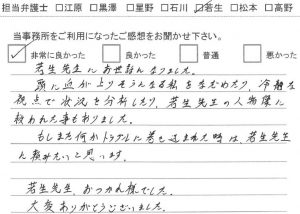 担当弁護士 □江原 □黒澤 □星野 □石川 ☑若生 □松本 □高野
当事務所をご利用になってご感想をお聞かせ下さい。
☑非常に良かった □良かった □普通 □悪かった
若生先生にお世話になりました。
頭に血が上りそうになる私をなだめたり、冷静な
視点で状況を分析したり、若生先生の人物像に
救われた事もありました。
もしまた何かトラブルに巻き込まれた時は、若生先生
に頼みたいと思います。
若生先生、おつかれ様でした。
大変ありがとうございました。